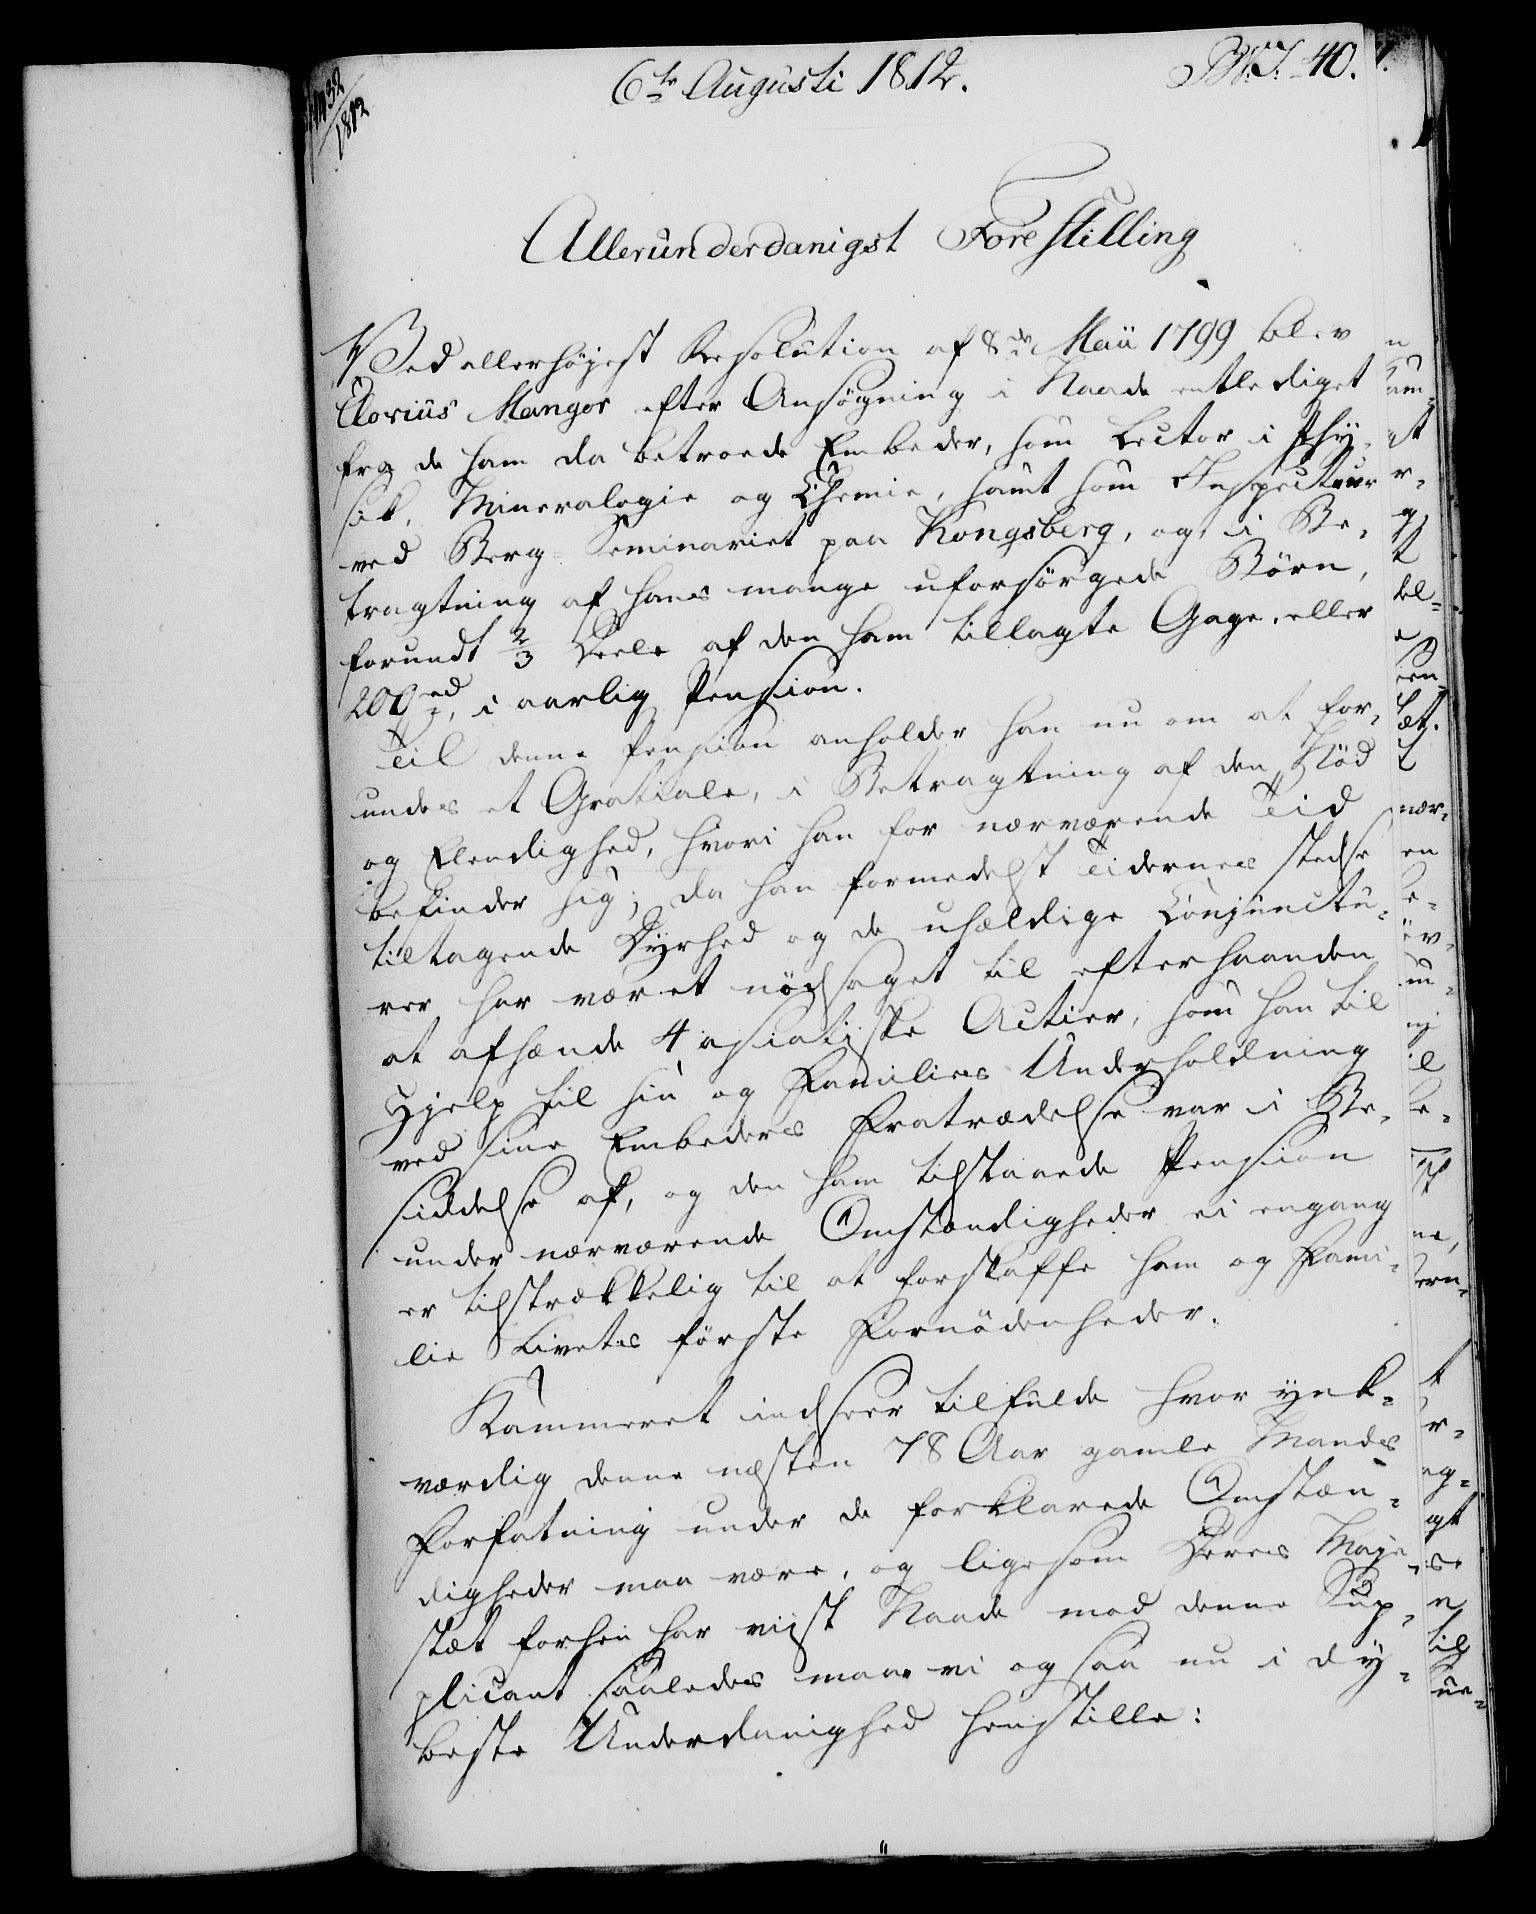 6te Augusti 1812.
No. 40.
32/1812
Allerunderdanigst Forestilling
Ved allerhøjest Resolution af 8de Maii 1799 blev
Elovius Mangor efter Ansøgning i Naade entlediget
fra de ham da betroede Embeder, som Lector i Phy-
sik, Mineralogie og Chemie, samt som Inspecteur
ved Berg-Seminariet paa Kongsberg, og i Be-
tragtning af hans mange uforsørgede Børn,
forundt 2/3 Deele af den ham tillagte Gage, eller
200 rd, i aarlig Pension.
Til denne Pension anholder han nu om at for-
undes et Gratiale, i Betragtning af den Nød
og Elendighed, hvori han for nærværende Tid
befinder sig; da han formedelst Tidernes stedse
tiltagende Dyrhed og de uheldige Conjunctu-
rer har været nødsaget til efterhaanden
at afhænde 4 asiatiske Actier, som han til
Hjelp til sin og Families Underholdning
ved sine Embeders Fratrædelse var i Be-
siddelse af, og den ham tilstaaede Pension
under nærværende Omstændigheder ei engang
er tilstrækkelig til at forskaffe ham og Fami-
lie Livets første Fornødenheder.
Kammeret indseer tilfulde hvor ynk-
værdig denne næsten 78 Aar gamle Mands
Forfatning under de forklarede Omstæn-
digheder maa være, og ligesom Deres Maje-
stæt forhen har viist Naade mod denne Sup-
plicant saaledes maae vi ogsaa nu i dy-
beste Underdanighed henstille: